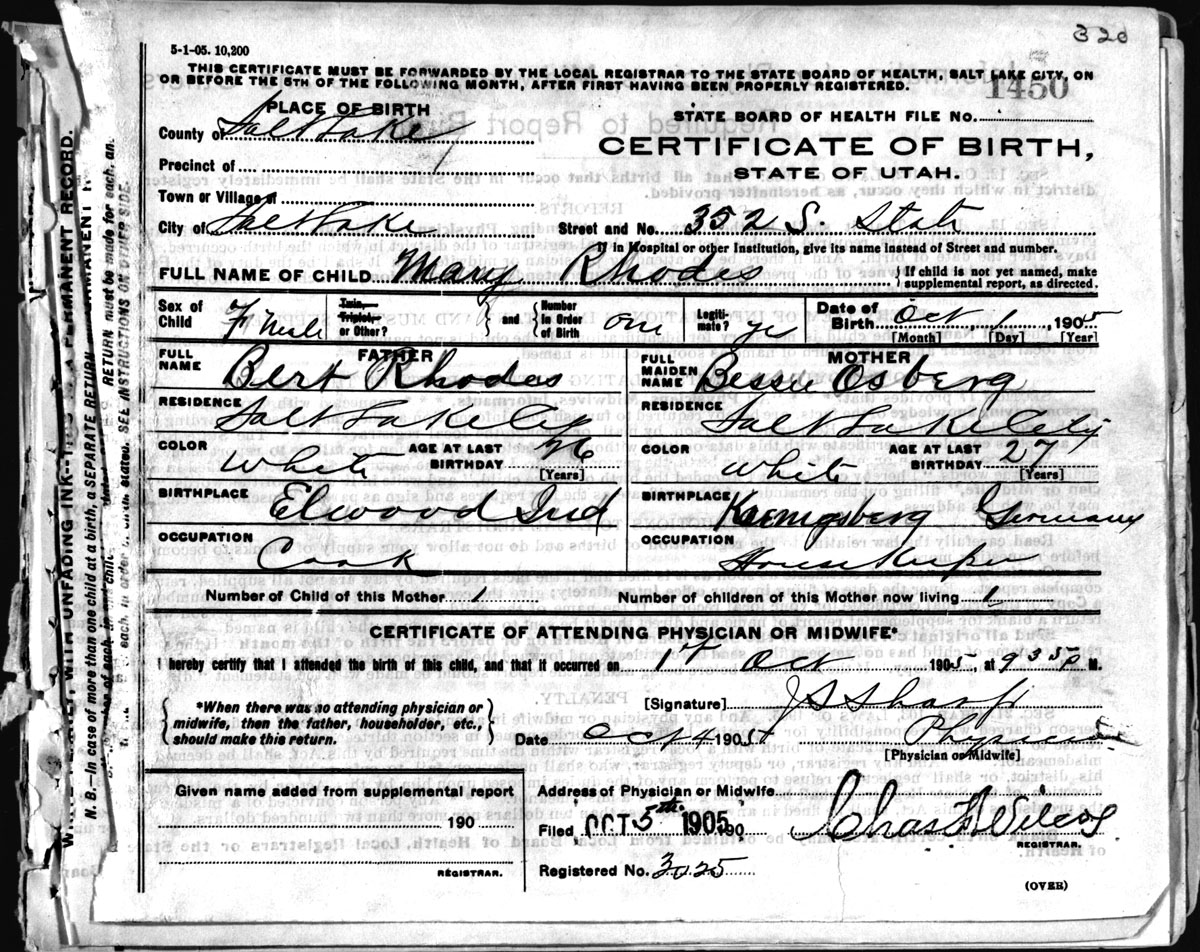 320
5-1-05. 10,200
THIS CERTIFICATE MUST BE FORWARDED BY THE LOCAL REGISTRAR TO THE STATE BOARD OF HEALTH, SALT LAKE CITY, ON
OR BEFORE THE 5TH OF THE FOLLOWING MONTH, AFTER FIRST HAVING BEEN PROPERLY REGISTERED.
1450
PLACE OF BIRTH
STATE BOARD OF HEALTH FILE No.
County of Salt Lake
CERTIFICATE OF BIRTH,
Precinct of
STATE OF UTAH.
Town or Village of
City of Salt Lake Street and No. 352 S. State
If in Hospital or other Institution, give its name instead of Street and number.
FULL NAME OF CHILD Mary Rhodes { If child is not yet named, make supplemental report, as directed.
Sex of Child Female Twin, Triplet, or Other? } and { Number in Order of Birth one Legiti-mate? yes Date of Birth Oct 1, 1905
[Month] [Day] [Year]
FATHER MOTHER
FULL NAME Bert Rhodes FULL MAIDEN NAME Bessie Osberg
RESIDENCE Salt Lake City RESIDENCE Salt Lake City
COLOR White AGE AT LAST BIRTHDAY 26 [Years] COLOR White AGE AT LAST BIRTHDAY 27 [Years]
BIRTHPLACE Elwood Ind BIRTHPLACE Koenigsberg Germany
OCCUPATION Cook OCCUPATION House Keeper
Number of Child of this Mother 1 Number of children of this Mother now living 1
CERTIFICATE OF ATTENDING PHYSICIAN OR MIDWIFE*
I hereby certify that I attended the birth of this child, and that it occurred on 1st Oct 1905, at 935 P M.
{ *When there was no attending physician or midwife, then the father, householder, etc., should make this return. }
[Signature] J S Sharp
Date Oct 4 1905
[Physician or Midwife]
Given name added from supplemental report
190
REGISTRAR.
Address of Physician or Midwife
Filed OCT 5th 1905 190 Chas H Wilcox
REGISTRAR.
Registered No. 3025
(OVER)
N. B.—In case of more than one child at a birth, a SEPARATE RETURN must be made for each, an.
SEE INSTRUCTIONS ON OTHER SIDE.